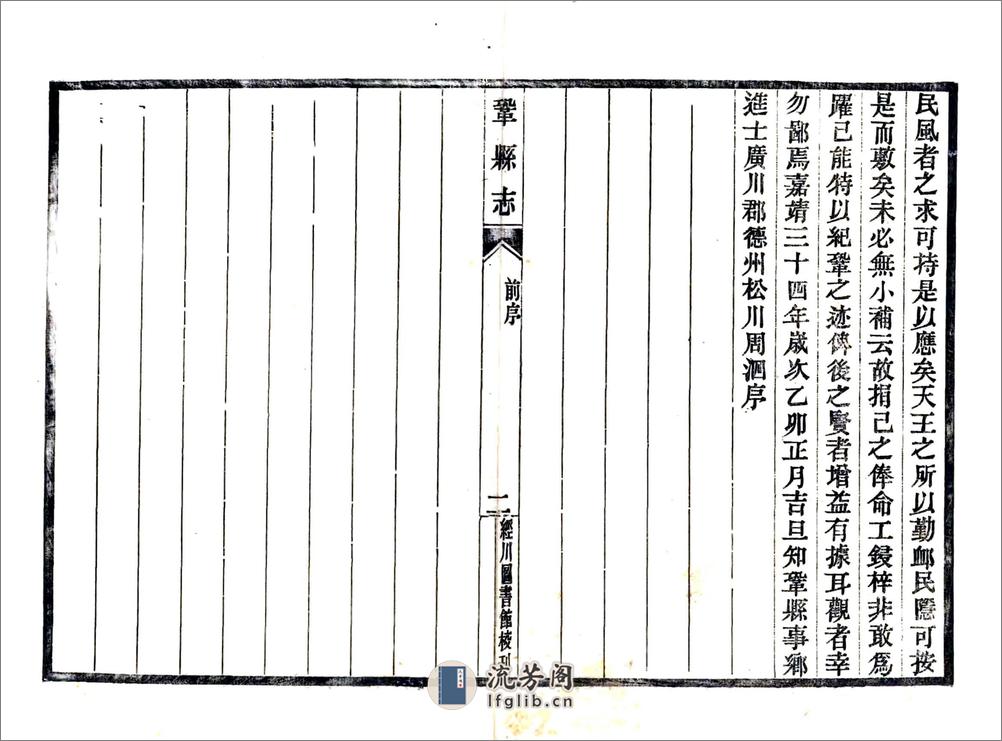 民風者之求可持是以應矣天王之所以勤邮民隱可按
是而敷矣未必無小補云故捐己之俸命工鋟梓非敢爲
躍已能特以紀鞏之迹俾後之賢者增益有據耳觀者幸
勿鄙焉嘉靖三十四年歲次乙卯正月吉旦知鞏縣事鄉
進士廣川郡德州松川周泗序
鞏縣志
前序
二
經川圖書館校刊
流芳阁
lfglib.cn